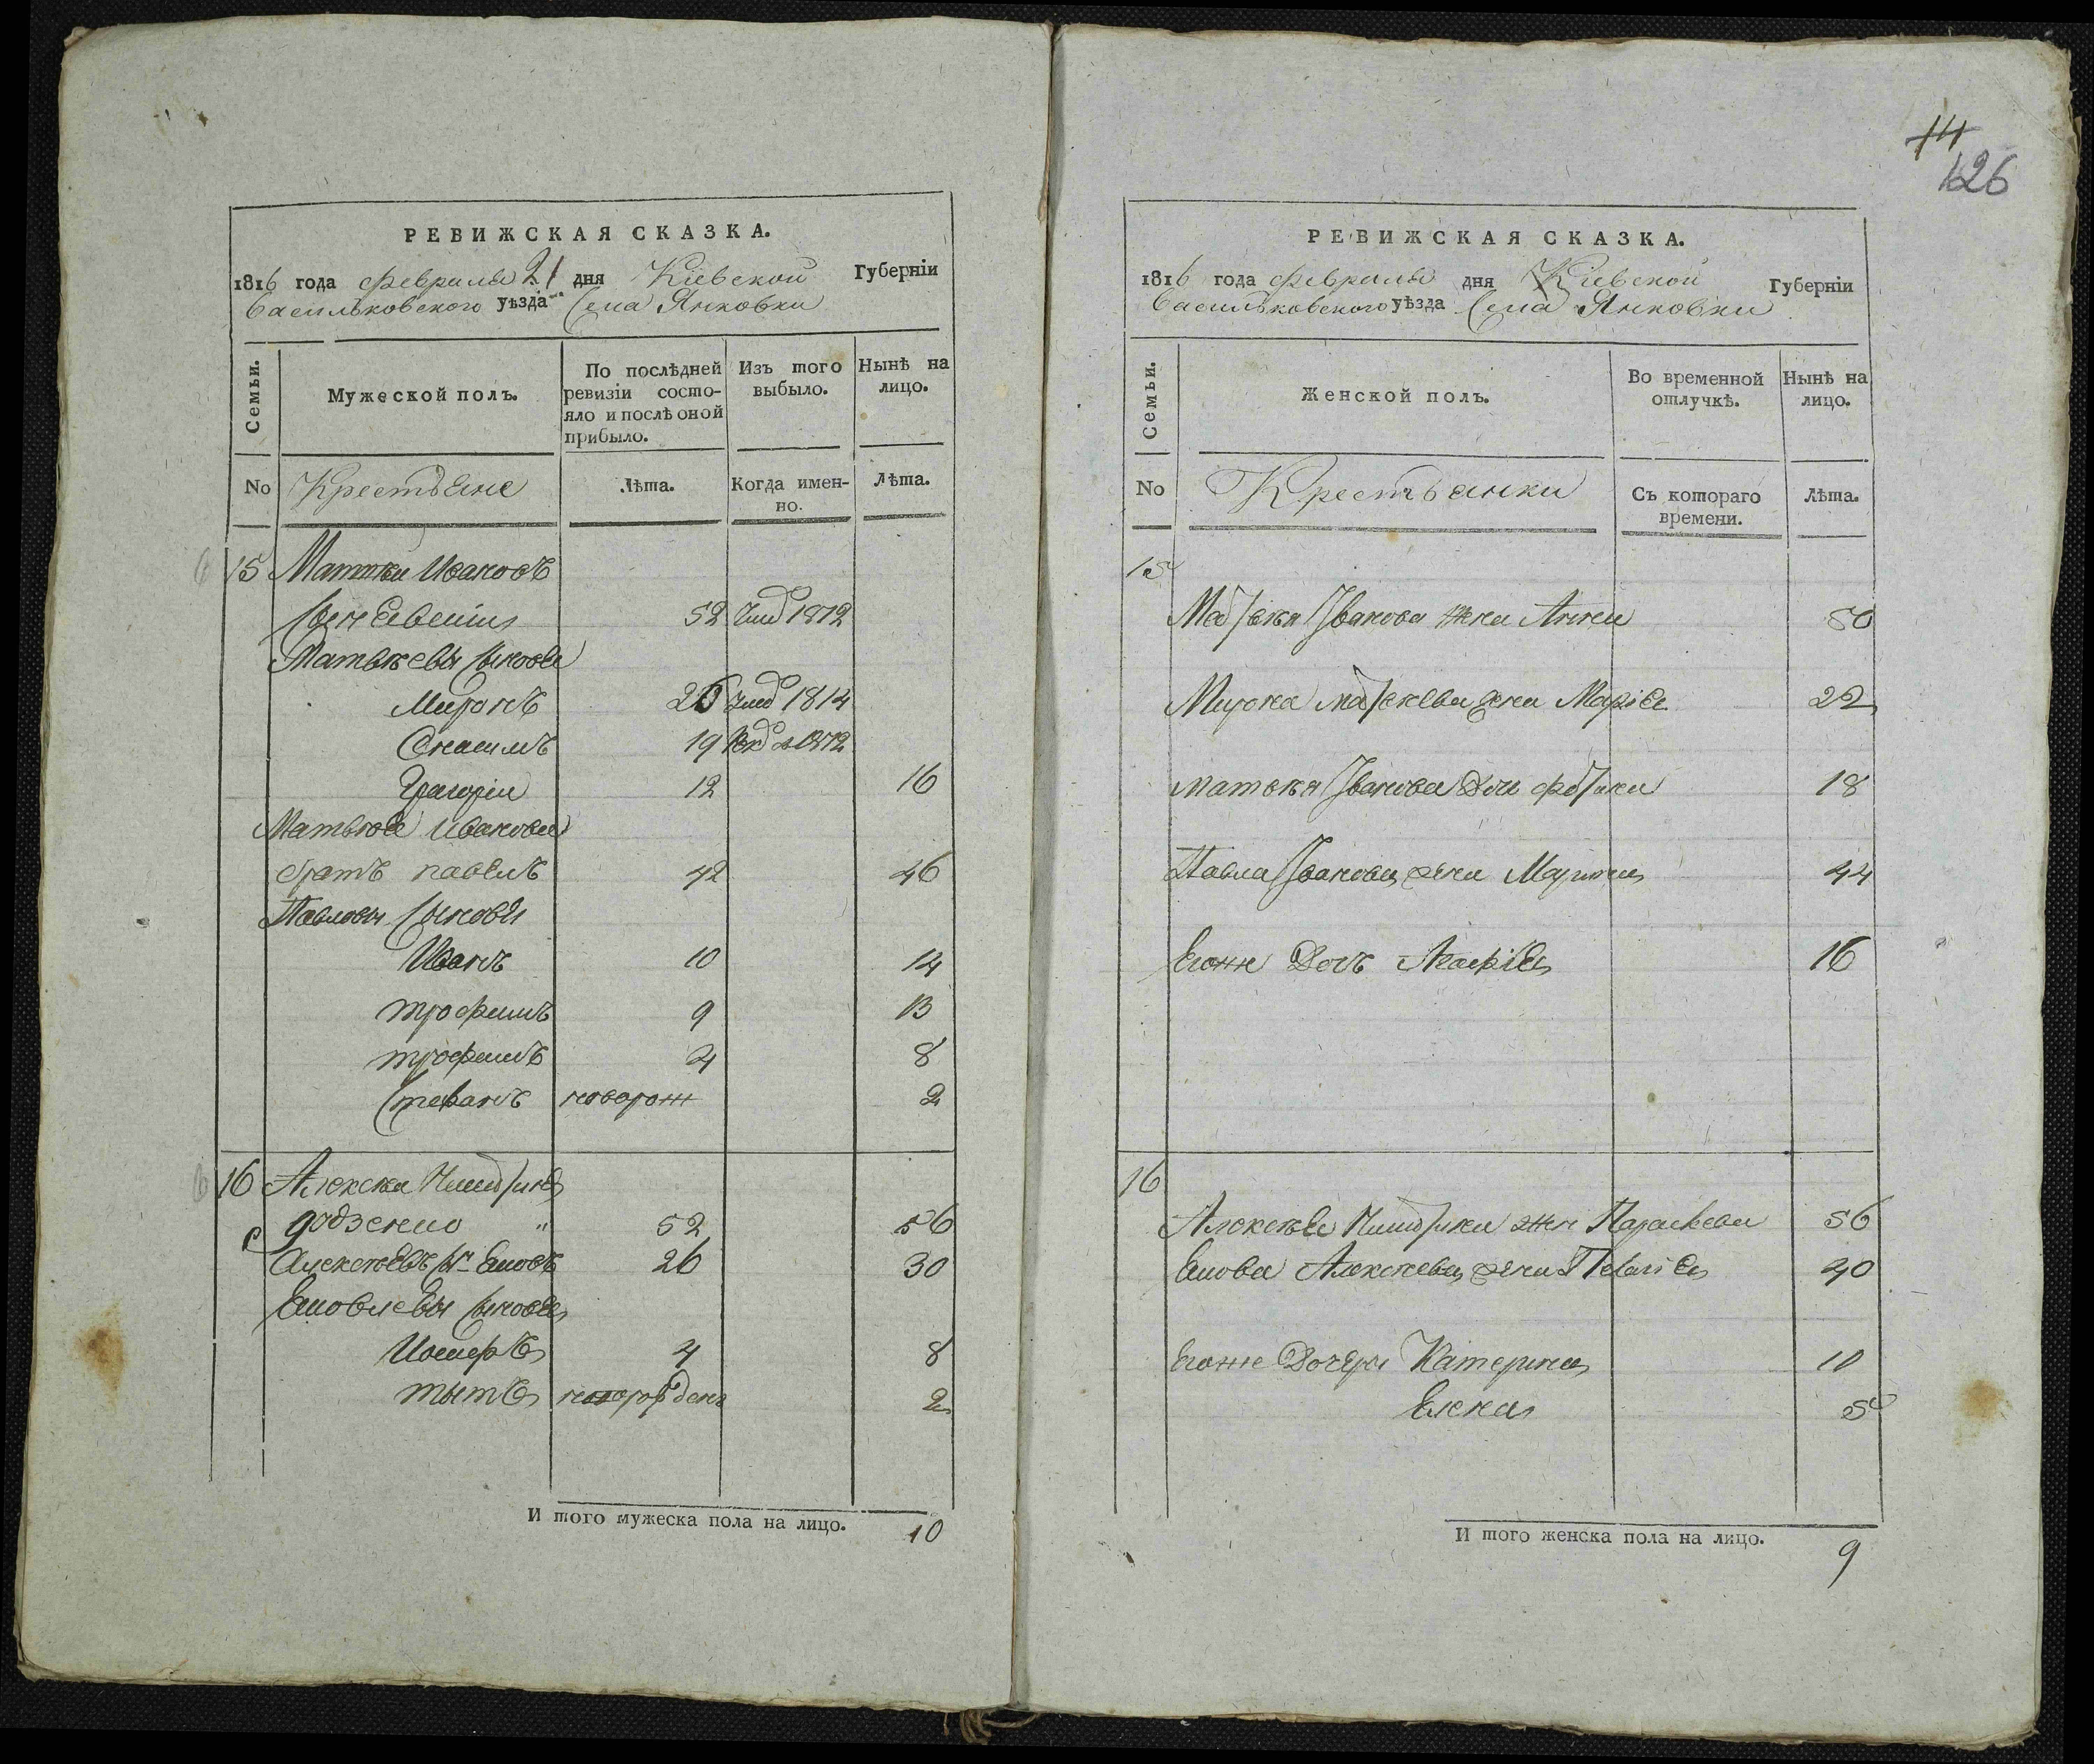 14
126
РЕВИЖСКАЯ СКАЗКА.
1816 года февраля 21 дня Кіевской Губерніи
Васильковского уѣзда Села Янковки
Семьи.
Мужеской полъ.
По послѣдней ревизіи состо-
яло и послѣ оной прибыло.
Изъ того выбыло.
Нынѣ на лицо.
No Крестьяне Лѣта. Когда имен-
но. Лѣта.
15 Матвѣи Ивановъ
52 1812
Матвѣевы сынове
Миронъ 26 1814
Онасимъ 19 1812
Григорiи 12 16
Матвѣя Иванова
братъ павелъ 42 46
Павловы сынови
Иванъ 10 14
трофимъ 9 13
трофимъ 4 8
Стефанъ новорож 2
16 Алексѣи
52 56
Алексѣевъ сн 26 30
сынове
Иосифъ 4 8
тытъ 2
И того мужеска пола на лицо. 10
РЕВИЖСКАЯ СКАЗКА.
1816 года февраля дня Кіевской Губерніи
Васильковского уѣзда Села Янковки
Семьи.
Женской полъ.
Во временной отлучкѣ.
Нынѣ на лицо.
No Крестьянки Съ котораго времени. Лѣта.
15
Матвѣя Иванова жена Анна 50
Мирона Матвѣева жена Марiя 22
Матвѣя Иванова дочь 18
Павла Иванова жена Марина 44
Егоже Дочъ Агафiя 16
16
Алексѣя жена Параскева 56
Алексѣева жена 40
Егоже Дочери Катерина 10
Елена 5
И того женска пола на лицо. 9